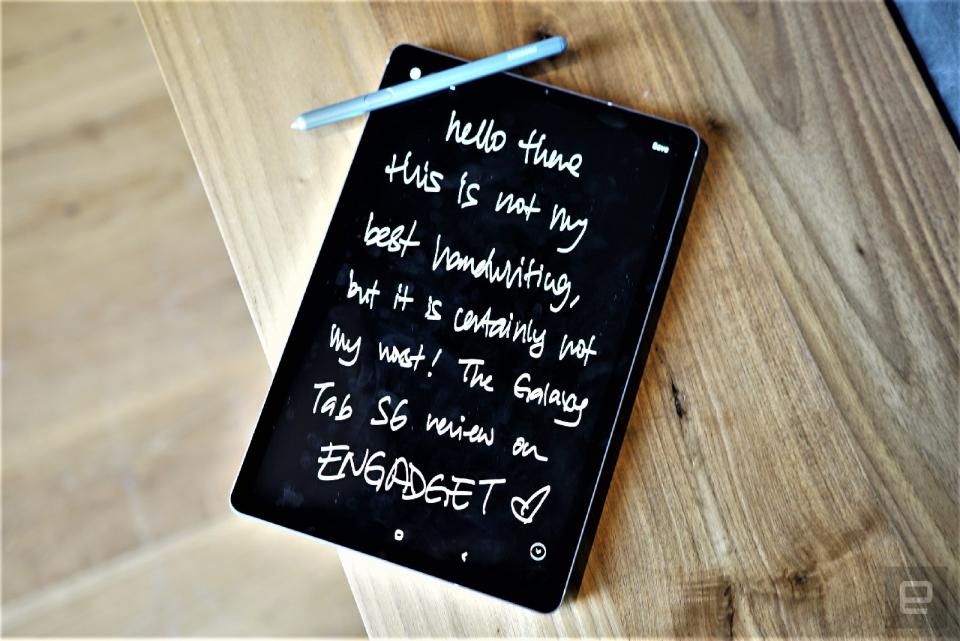 SAMSUNG
Save
hello there
this is not my
best handwriting,
but it is certainly not
my worst! The Galaxy
Tab S6 review on
ENGADGET
e